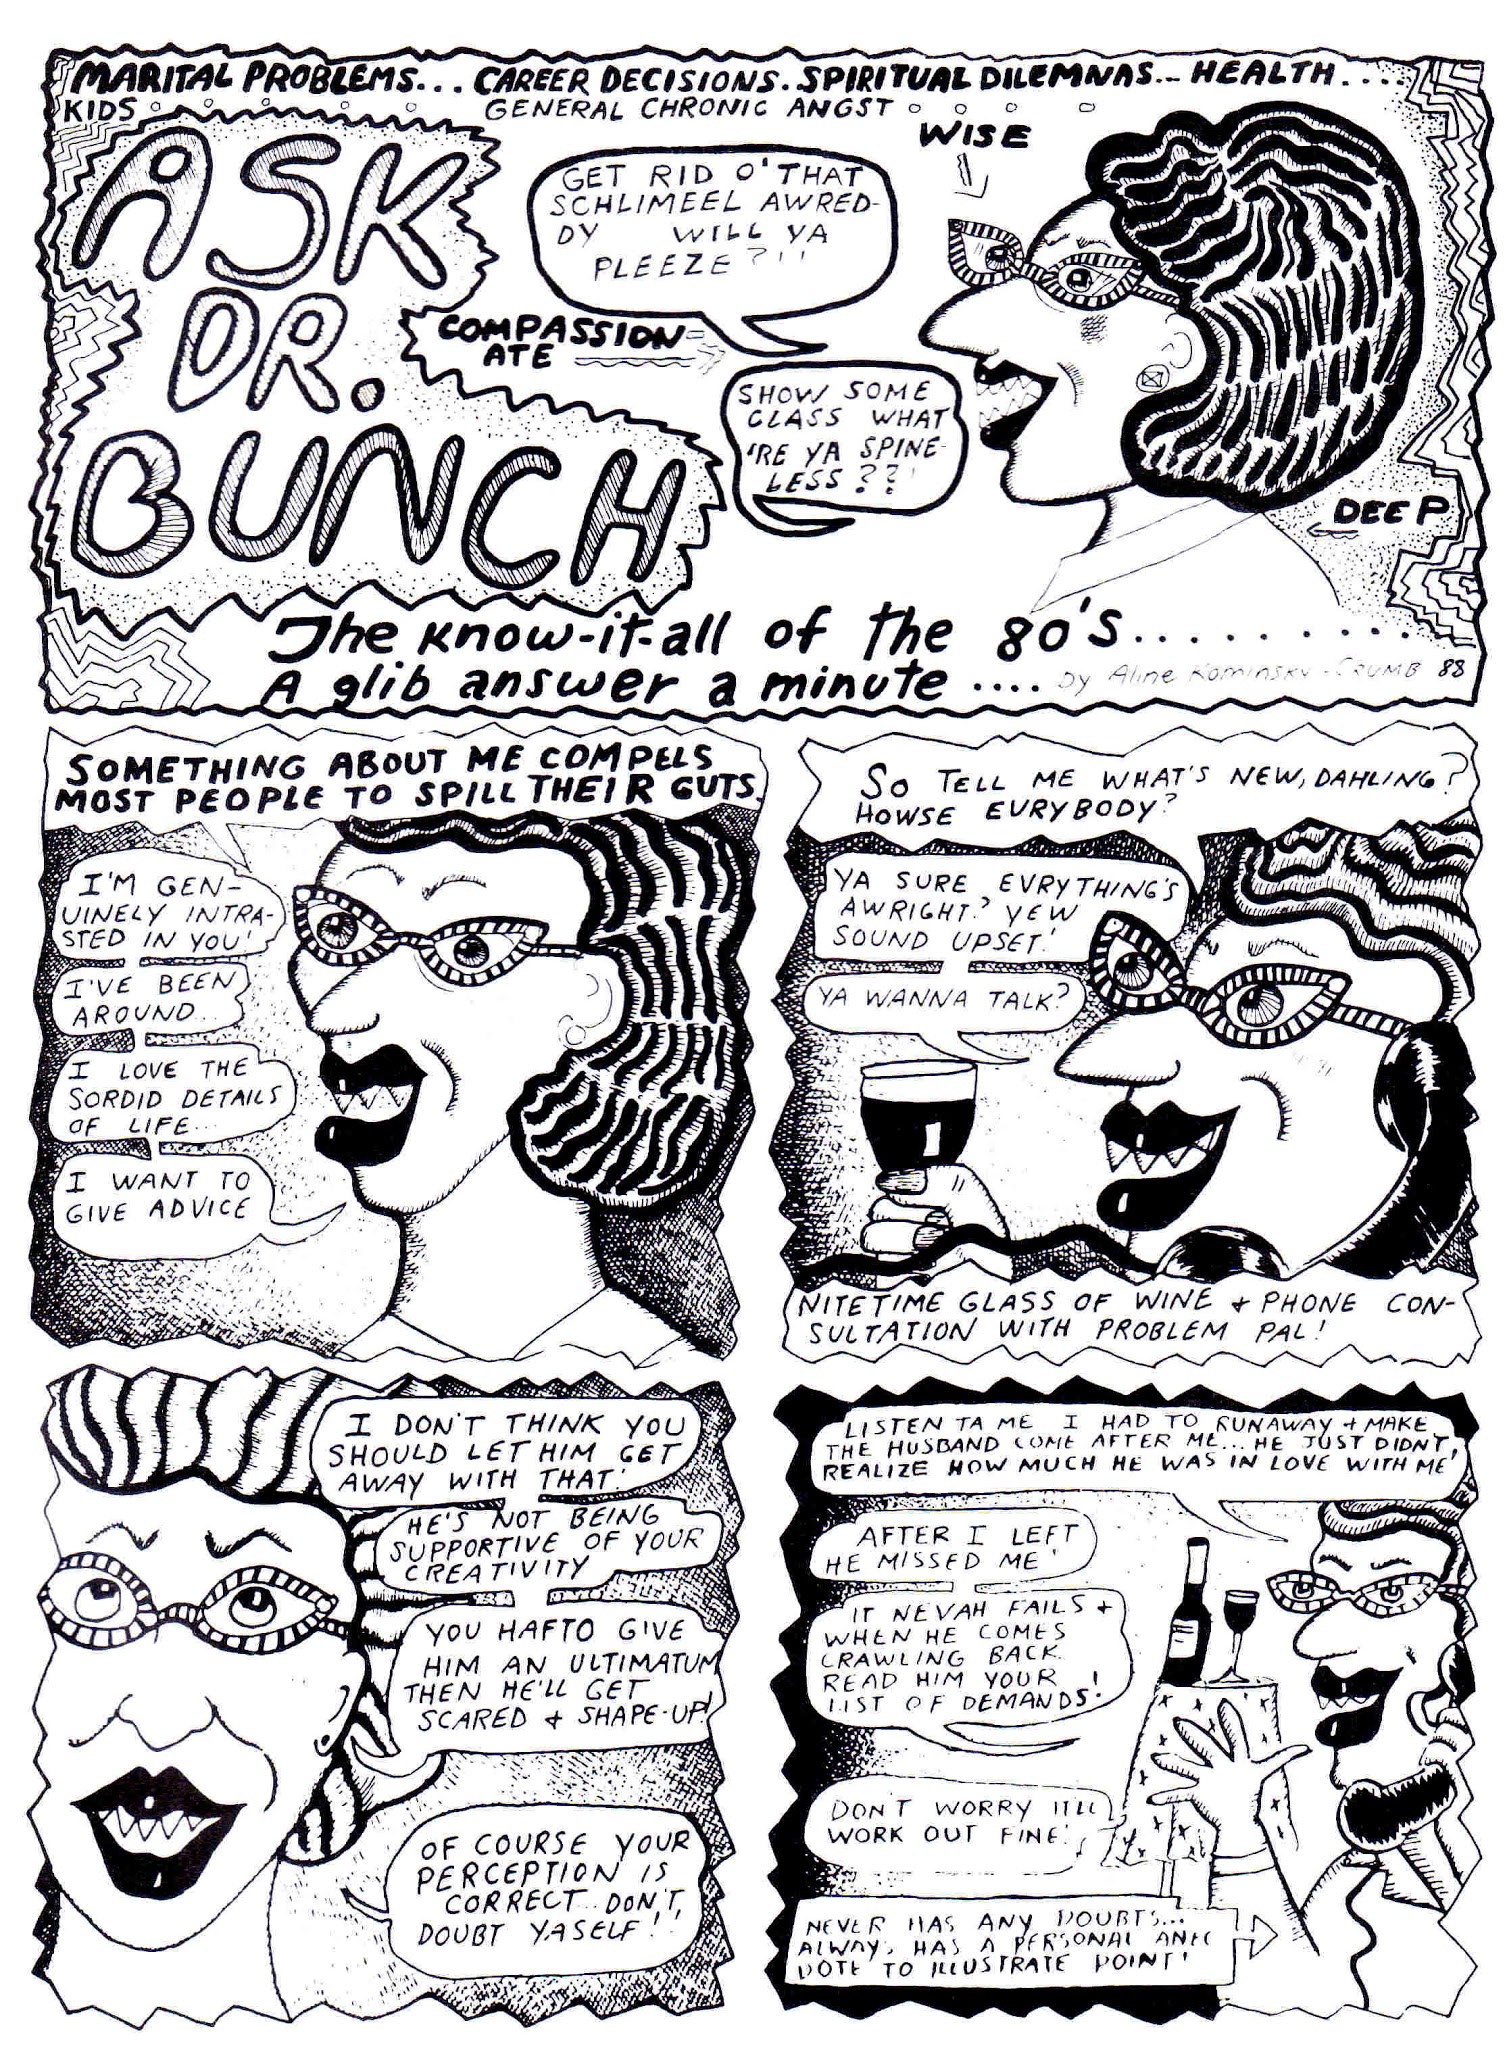 MARITAL PROBLEMS... CAREER DECISIONS. SPIRITUAL DILEMNAS... HEALTH....
KIDS
GENERAL CHRONIC ANGST
ASK
DR.
BUNCH
WISE
GET RID O' THAT
SCHLIMEEL AWRED-
DY WILL YA
PLEEZE?!!
COMPASSION-
ATE
SHOW SOME
CLASS WHAT
'RE YA SPINE-
LESS??!
DEEP
The know-it-all of the 80's..........
A glib answer a minute ....
by Aline Kominsky-CRUMB 88
SOMETHING ABOUT ME COMPELS
MOST PEOPLE TO SPILL THEIR GUTS.
I'M GEN-
UINELY INTRA-
STED IN YOU!
I'VE BEEN
AROUND...
I LOVE THE
SORDID DETAILS
OF LIFE...
I WANT TO
GIVE ADVICE
SO TELL ME WHAT'S NEW, DAHLING?
HOWSE EURYBODY?
YA SURE EVRYTHING'S
AWRIGHT? YEW
SOUND UPSET!
YA WANNA TALK?
NITETIME GLASS OF WINE + PHONE CON-
SULTATION WITH PROBLEM PAL!
I DON'T THINK YOU
SHOULD LET HIM GET
AWAY WITH THAT!
HE'S NOT BEING
SUPPORTIVE OF YOUR
CREATIVITY
YOU HAFTO GIVE
HIM AN ULTIMATUM
THEN HE'LL GET
SCARED + SHAPE-UP!
OF COURSE YOUR
PERCEPTION IS
CORRECT... DON'T,
DOUBT YASELF!!
LISTEN TA ME I HAD TO RUNAWAY + MAKE
THE HUSBAND COME AFTER ME... HE JUST DIDNT,
REALIZE HOW MUCH HE WAS IN LOVE WITH ME!
AFTER I LEFT
HE MISSED ME!
IT NEVAH FAILS +
WHEN HE COMES
CRAWLING BACK
READ HIM YOUR
LIST OF DEMANDS!
DON'T WORRY IT'LL
WORK OUT FINE!
NEVER HAS ANY DOUBTS...
ALWAYS HAS A PERSONAL ANEC
DOTE TO ILLUSTRATE POINT!